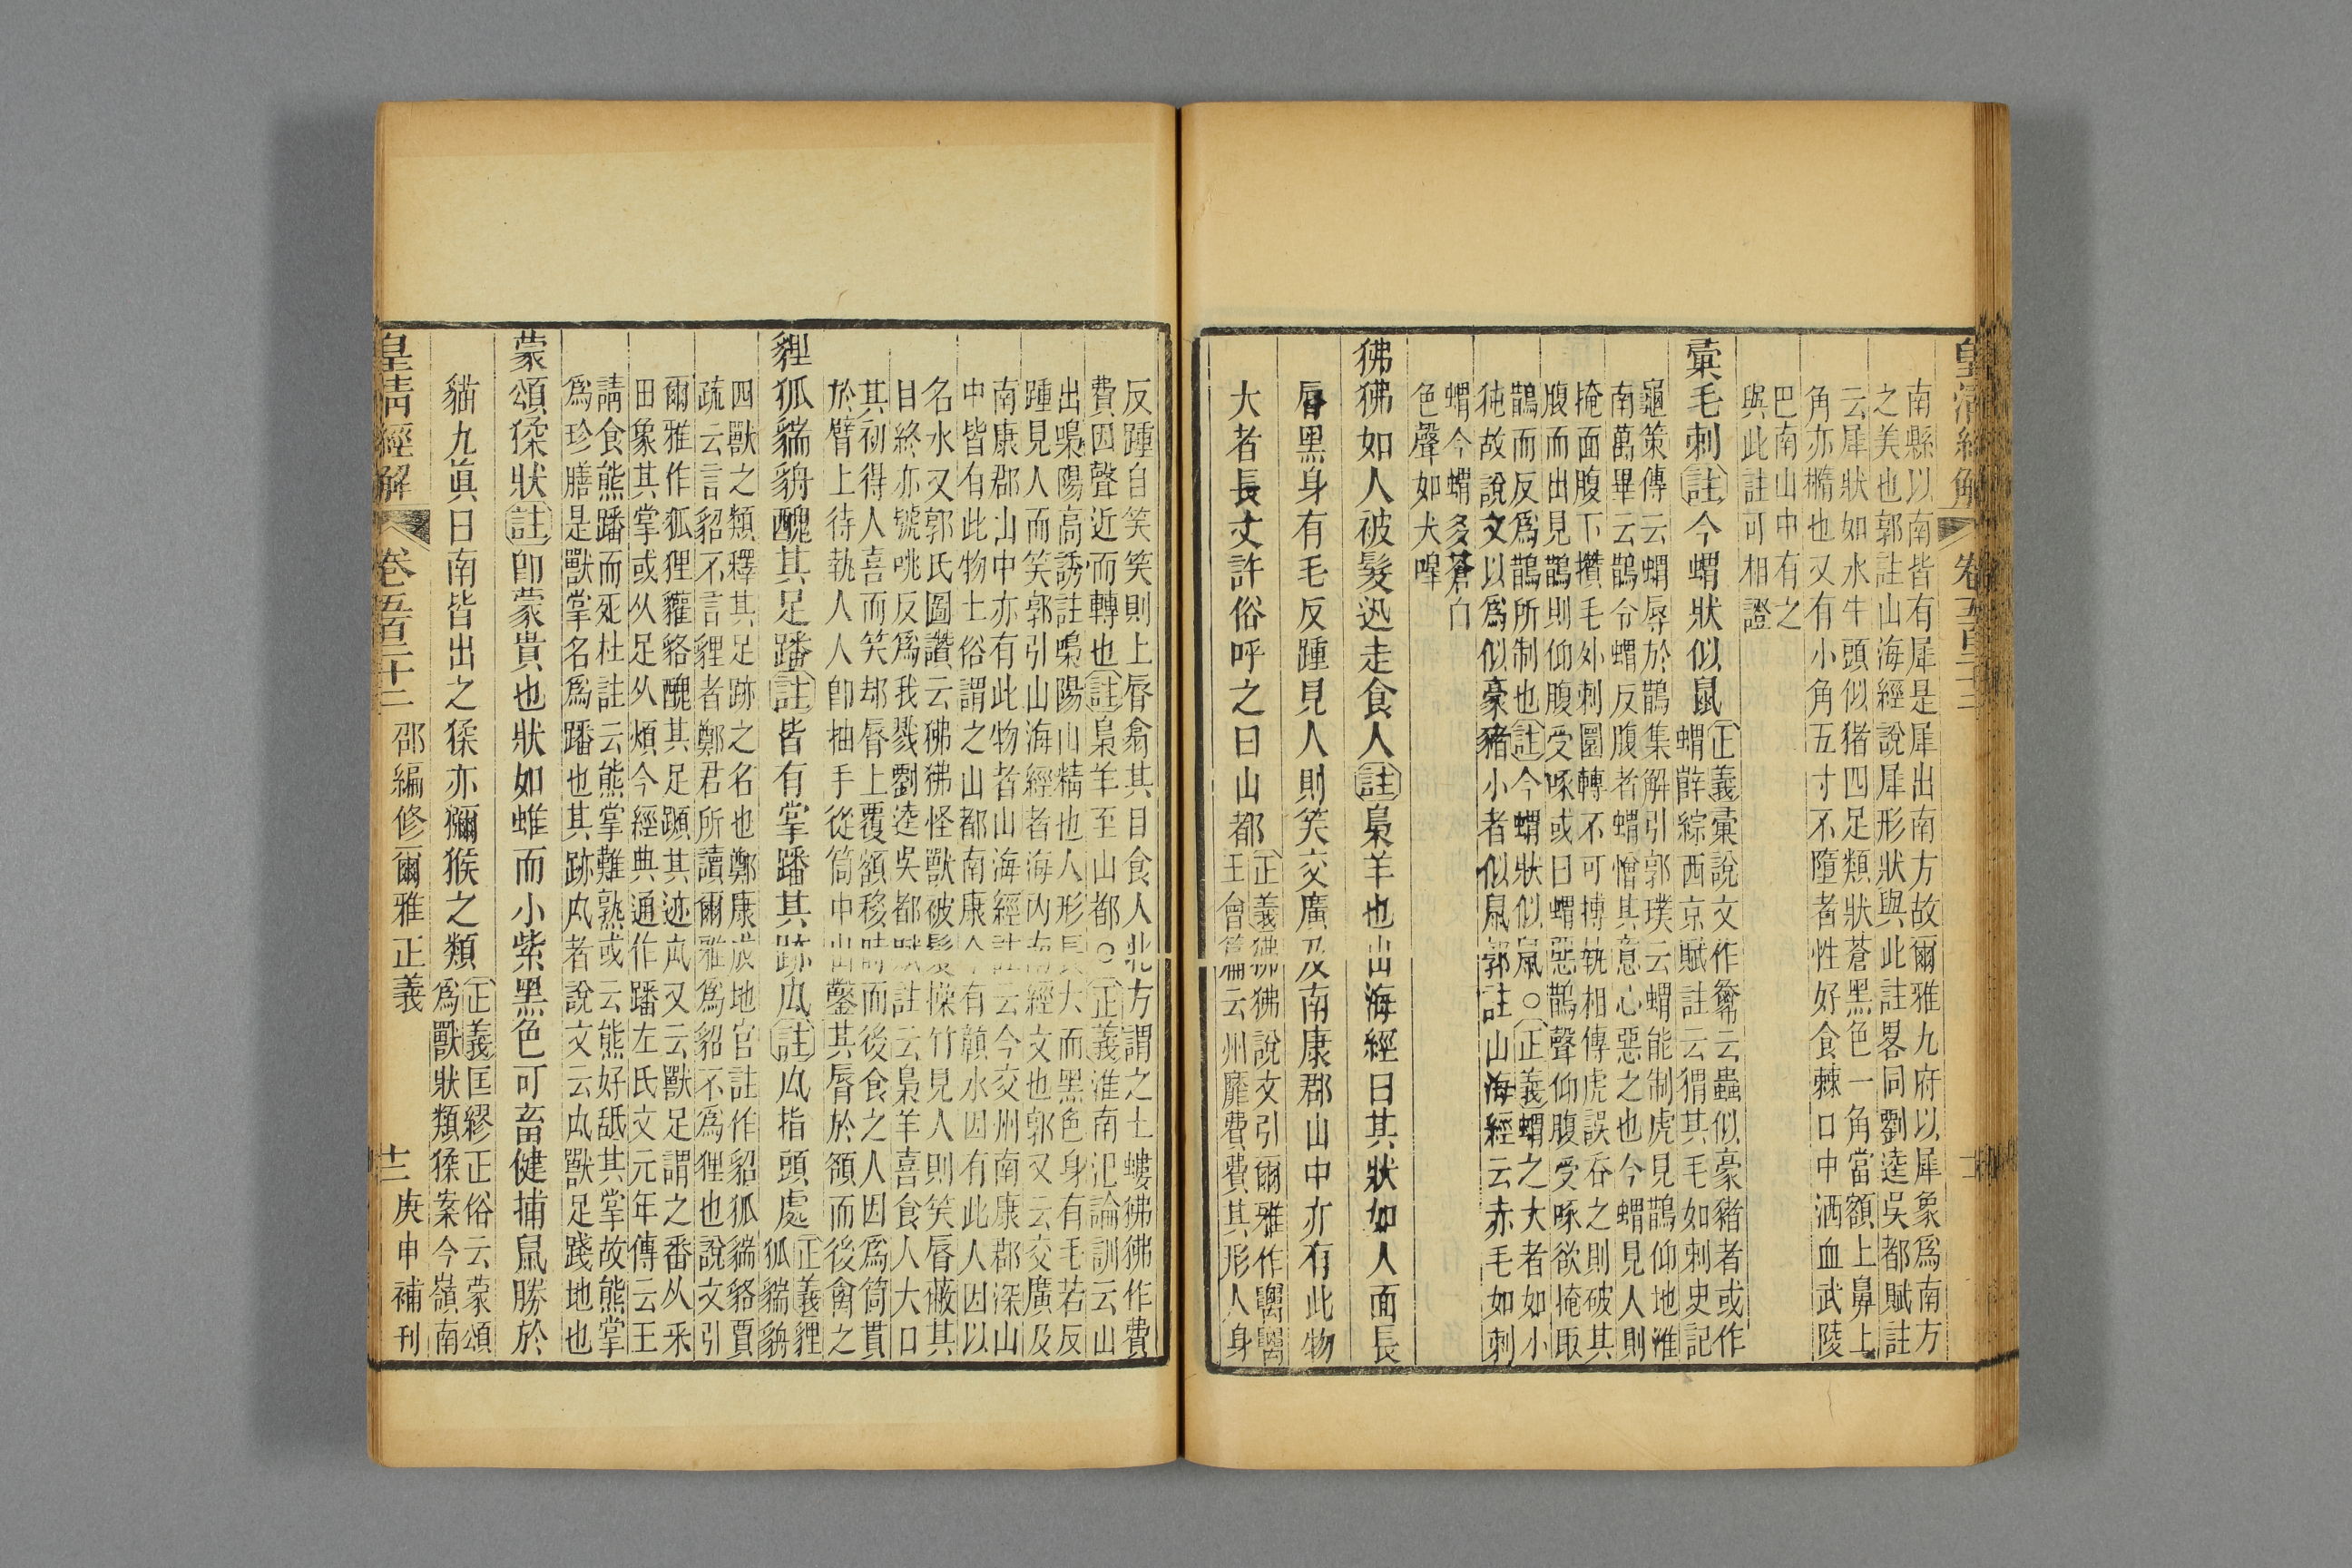 皇清經解 卷五百二十二
南縣以南皆有犀是犀出南方故爾雅九府以犀象爲南方
之美也郭註山海經說犀形狀與此註畧同劉逵吳都賦註
云犀狀如水牛頭似猪四足類狀蒼黑色一角當額上鼻上
角亦橢也又有小角五寸不墮者性好食棘口中洒血武陵
巴南山中有之
與此註可相證
彙毛刺註今蝟狀似鼠
正義彙說文作彙云蟲似豪豬者或作
蝟薛綜西京賦註云猬其毛如刺史記
龜策傳云蝟辱於鵲集解引郭璞云蝟能制虎見鵲仰地淮
南萬畢云鵲令蝟反腹者蝟憎其意心惡之也今蝟見人則
掩面腹下攢毛外刺圓轉不可搏執相傳虎誤吞之則破其
腹而出見鵲則仰腹受啄或曰蝟惡鵲聲仰腹受啄欲掩取
鵲而反爲鵲所制也註今蝟狀似鼠○正義蝟之大者如小
㹠故說文以爲似豪豬小者似鼠郭註山海經云赤毛如刺
蝟今蝟多蒼白
色聲如犬嘷
狒狒如人被髮迅走食人註梟羊也山海經曰其狀如人面長
脣黑身有毛反踵見人則笑交廣及南康郡山中亦有此物
大者長丈許俗呼之曰山都
正義狒狒說文引爾雅作𥝋𥝋
王會篇云州靡費費其形人身
反踵自笑笑則上脣翕其目食人北方謂之土螻狒狒作費
費因聲近而轉也註梟羊至山都○正義淮南氾論訓云山
出嘄陽高誘註嘄陽山精也人形長大而黑色身有毛若反
踵見人而笑郭引山海經者海內南經文也郭又云交廣及
南康郡山中亦有此物者山海經註云今交州南康郡深山
中皆有此物土俗謂之山都南康今有贛水因有此人因以
名水又郭氏圖讚云狒狒怪獸被髮操竹見人則笑脣蔽其
目終亦號咷反爲我戮劉逵吳都賦註云梟羊喜食人大口
其初得人喜而笑却脣上覆額移時而後食之人因爲筒貫
於臂上待執人人卽抽手從筒中出鑿其脣於額而後禽之
貍狐貒貈醜其足蹯註皆有掌蹯其跡𠘯註𠘯指頭處
正義貍
狐貒貈
四獸之類釋其足跡之名也鄭康成地官註作貂狐貒貉賈
疏云言貂不言貍者鄭君所讀爾雅爲貂不爲狸也說文引
爾雅作狐狸貛貉醜其足蹞其迹𠘯又云獸足謂之番从釆
田象其掌或从足从煩今經典通作蹯左氏文元年傳云王
請食熊蹯而死杜註云熊掌難熟或云熊好䑛其掌故熊掌
爲珍膳是獸掌名爲蹯也其跡𠘯者說文云𠘯獸足踐地也
蒙頌猱狀註卽蒙貴也狀如蜼而小紫黑色可畜健捕鼠勝於
貓九眞日南皆出之猱亦獼猴之類
正義匡繆正俗云蒙頌
爲獸狀類猱案今嶺南
皇清經解 卷五百二十二 邵編修爾雅正義 十二 庚申補刊